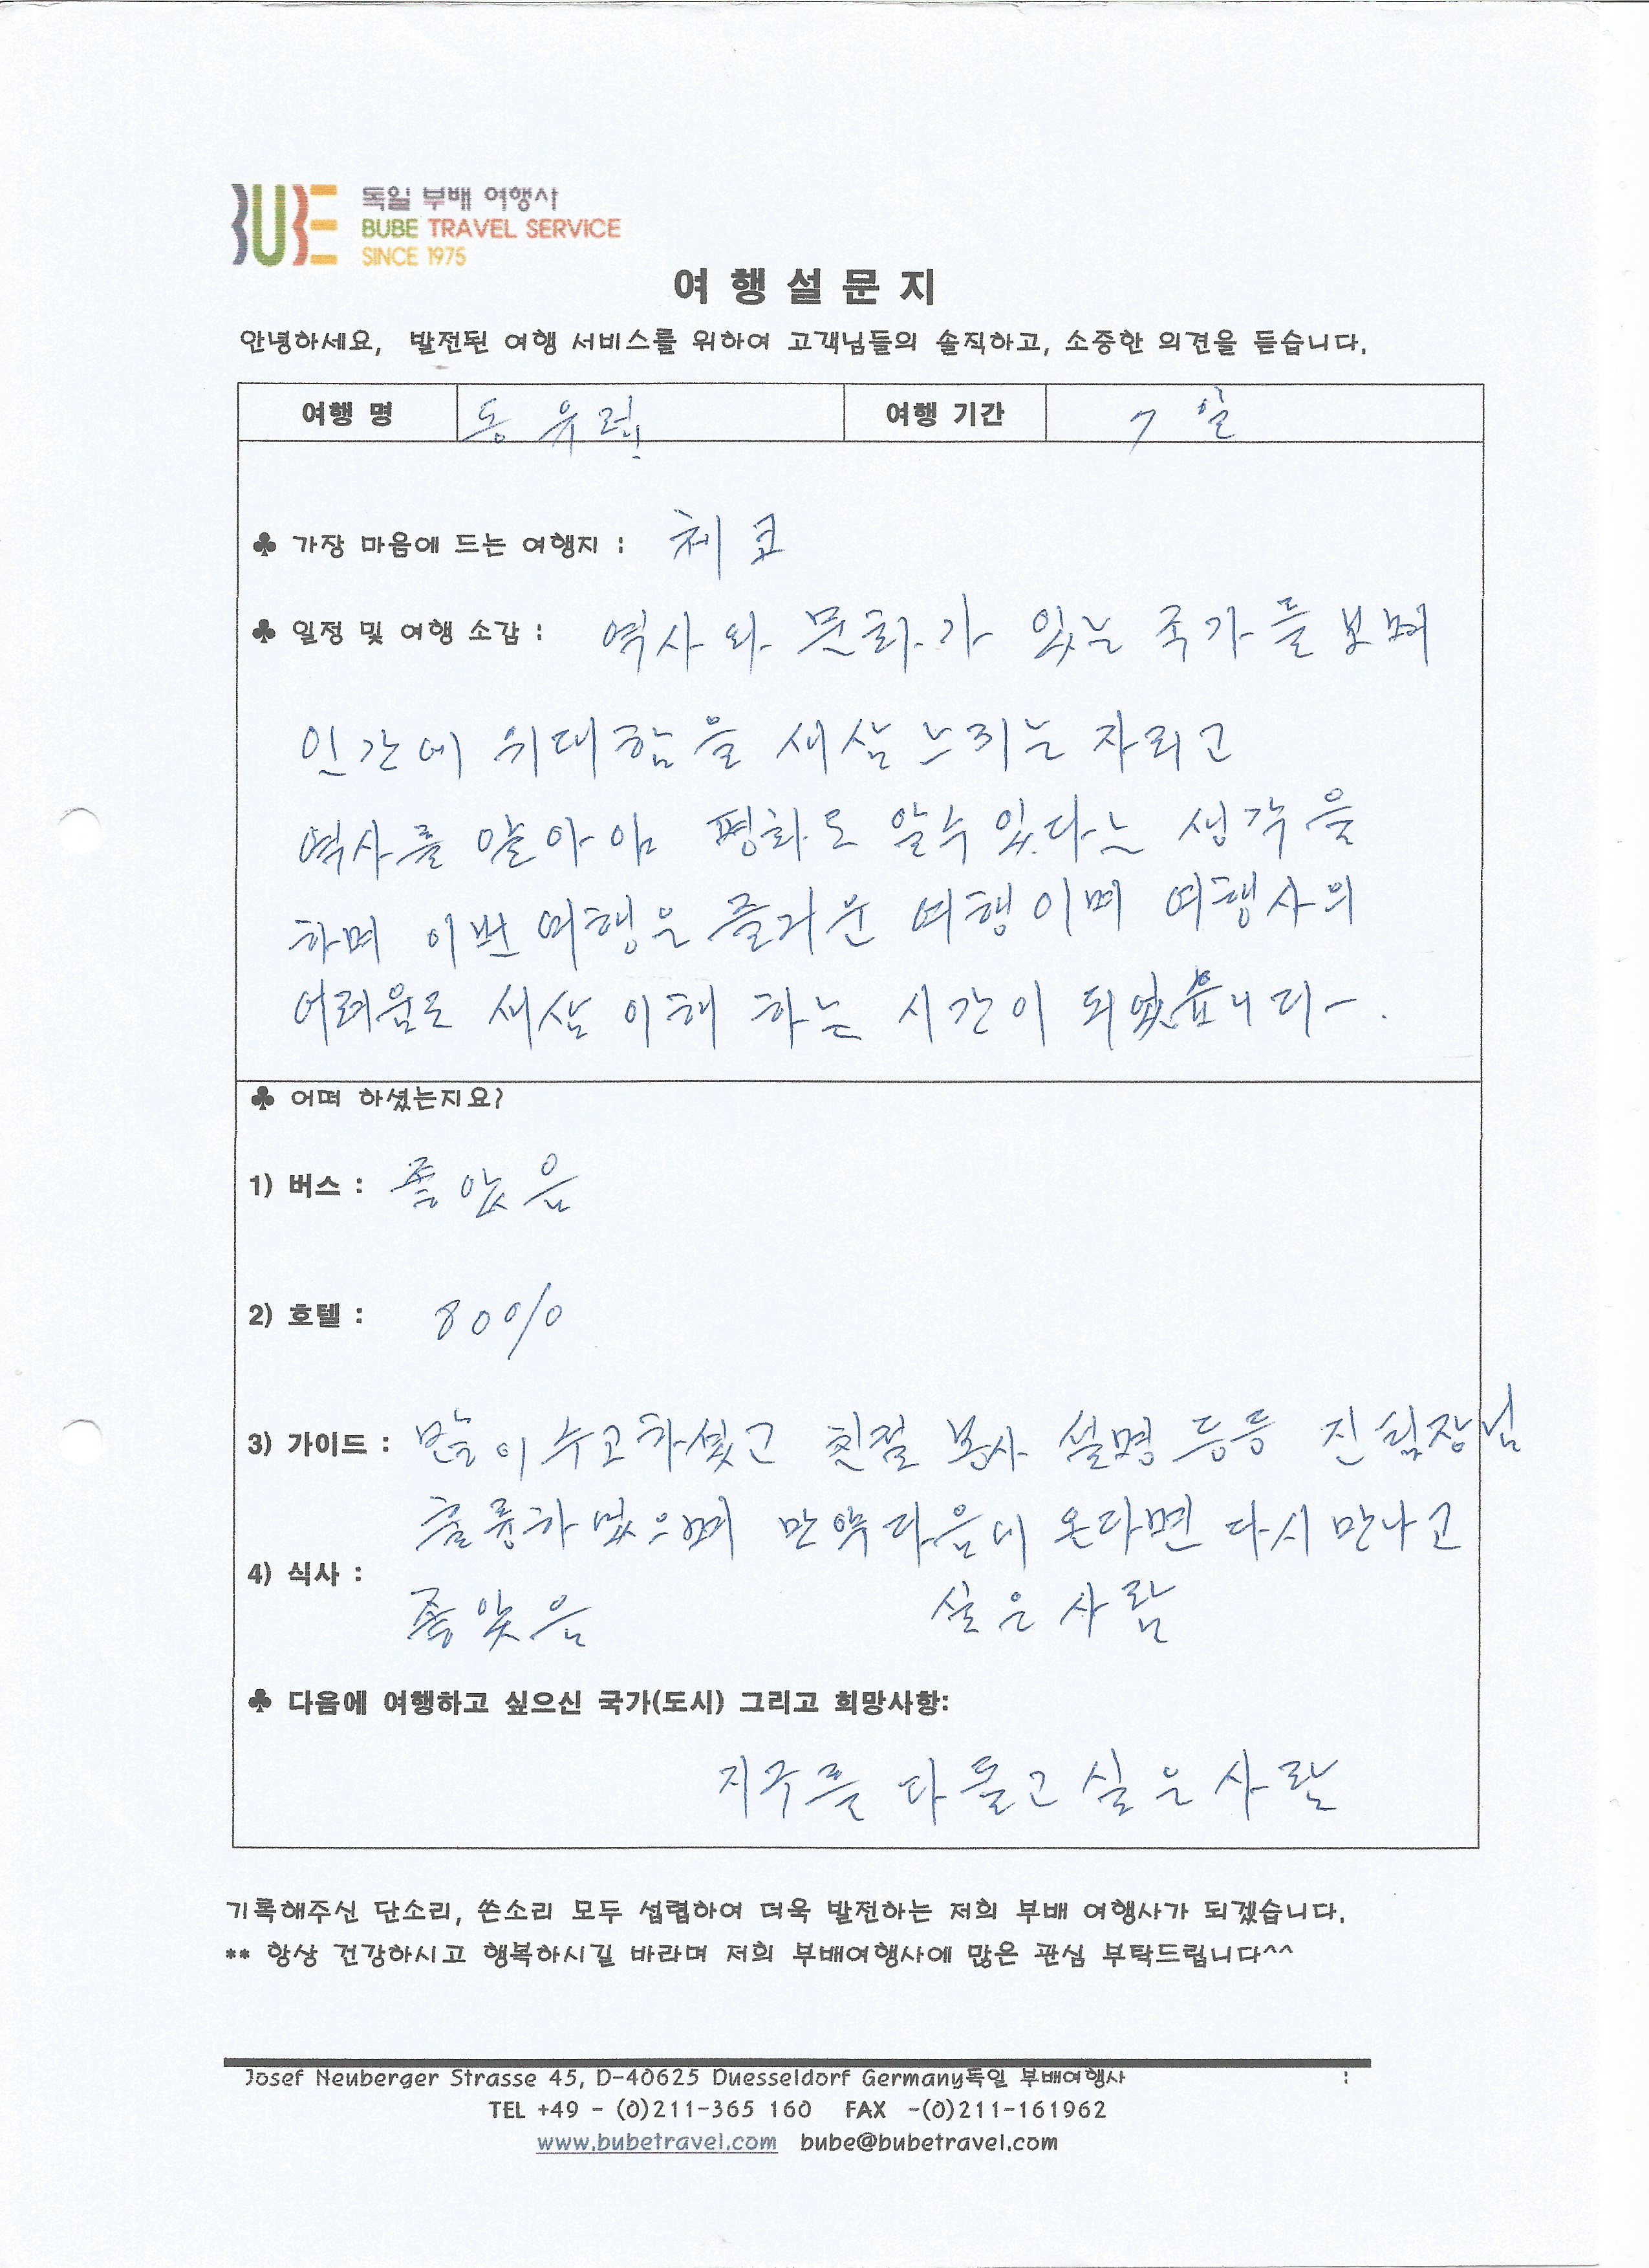 BUBE 독일 부배 여행사
BUBE TRAVEL SERVICE
SINCE 1975
여 행 설 문 지
안녕하세요, 발전된 여행 서비스를 위하여 고객님들의 솔직하고, 소중한 의견을 듣습니다.
여행 명 동유럽 여행 기간 7일
♣ 가장 마음에 드는 여행지 : 체코
♣ 일정 및 여행 소감 : 역사와 문화가 있는 국가를 보며
인간에 위대함을 새삼 느끼는 자리고
역사를 알아야 평화도 알수 있다는 생각을
하며 이번 여행은 즐거운 여행이며 여행사의
어려움도 새삼 이해 하는 시간이 되었읍니다.
♣ 어떠 하셨는지요?
1) 버스 : 좋았음
2) 호텔 : 80%
3) 가이드 : 많이 수고하셨고 친절 봉사 설명 등등 진 팀장님
훌륭하였으며 만약 다음에 온다면 다시 만나고
싶은 사람
4) 식사 : 좋았음
♣ 다음에 여행하고 싶으신 국가(도시) 그리고 희망사항:
지구를 다 돌고 싶은 사람
기록해주신 단소리, 쓴소리 모두 섭렵하여 더욱 발전하는 저희 부배 여행사가 되겠습니다.
** 항상 건강하시고 행복하시길 바라며 저희 부배여행사에 많은 관심 부탁드립니다^^
Josef Neuberger Strasse 45, D-40625 Duesseldorf Germany독일 부배여행사 :
TEL +49 - (0)211-365 160 FAX -(0)211-161962
www.bubetravel.com bube@bubetravel.com